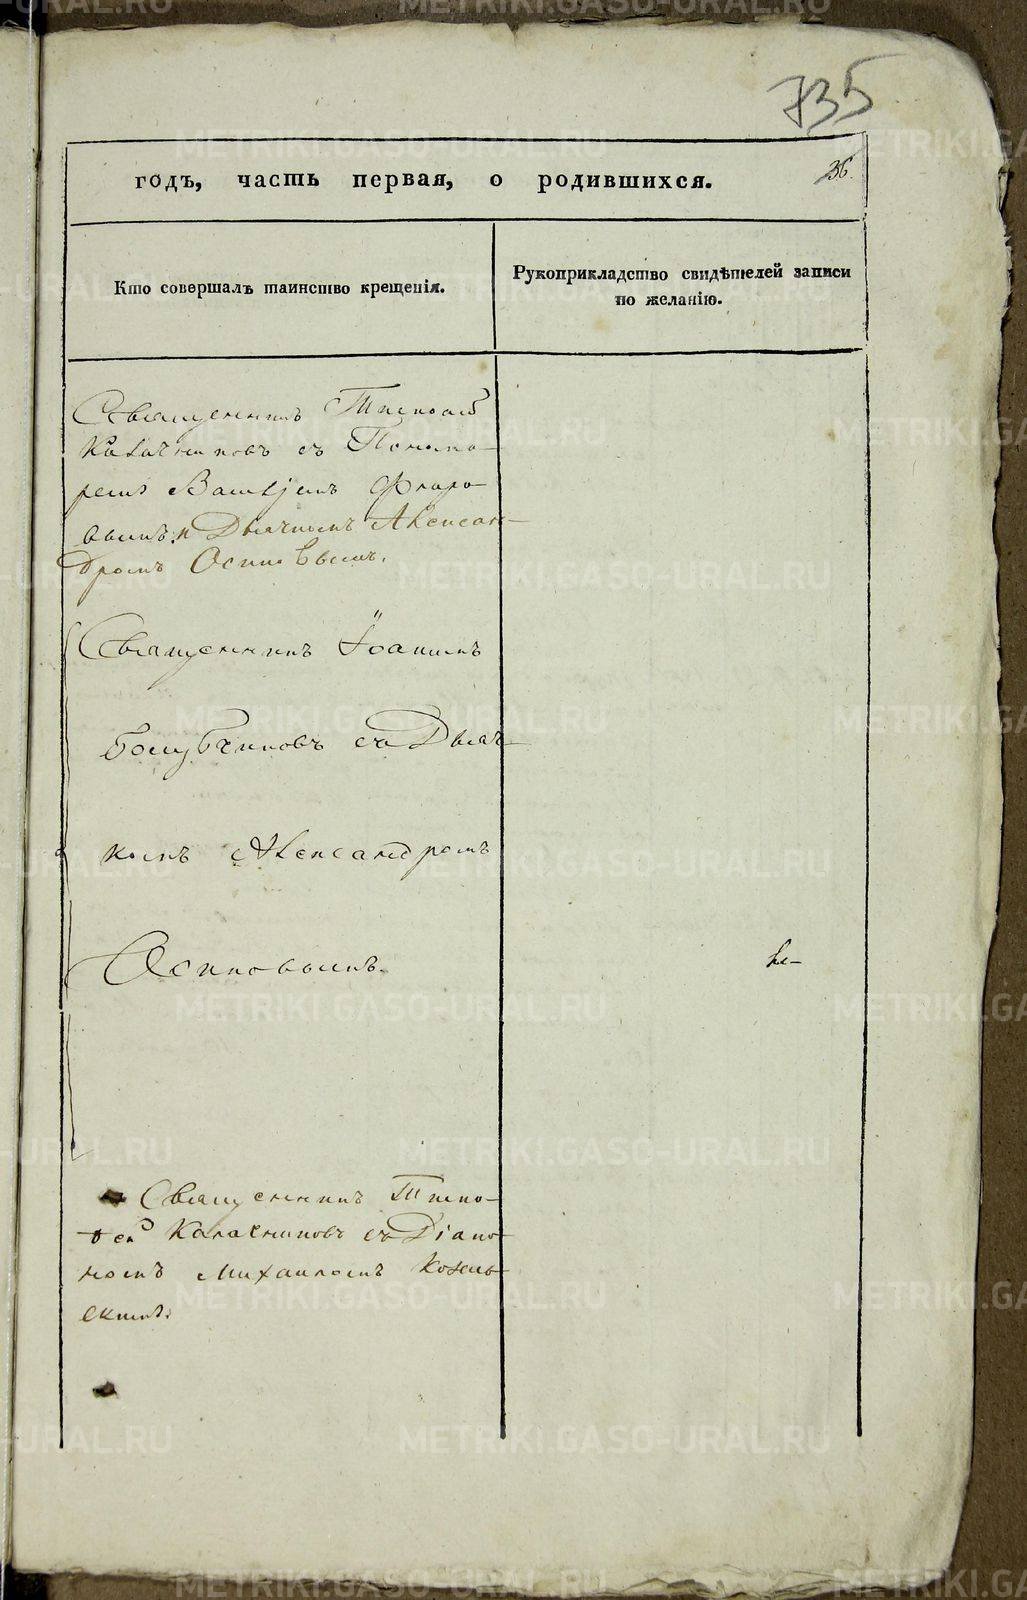 735
годъ, часть первая, о родившихся.
36.
Кто совершалъ таинство крещенія.
Рукоприкладство свидѣтелей записи
по желанію.
Священникъ Тимоѳей
Калачниковъ съ Понома-
ремъ Флоро-
вымъ и Дьячкомъ Алексан-
дромъ Осиповымъ.
Священникъ Іоаннъ
Голубчиковъ съ Дьяч-
комъ Александромъ
Осиповымъ.
Священникъ Тимо-
ѳей Калачниковъ съ Діако-
номъ Михаиломъ
METRIKI.GASO-URAL.RU